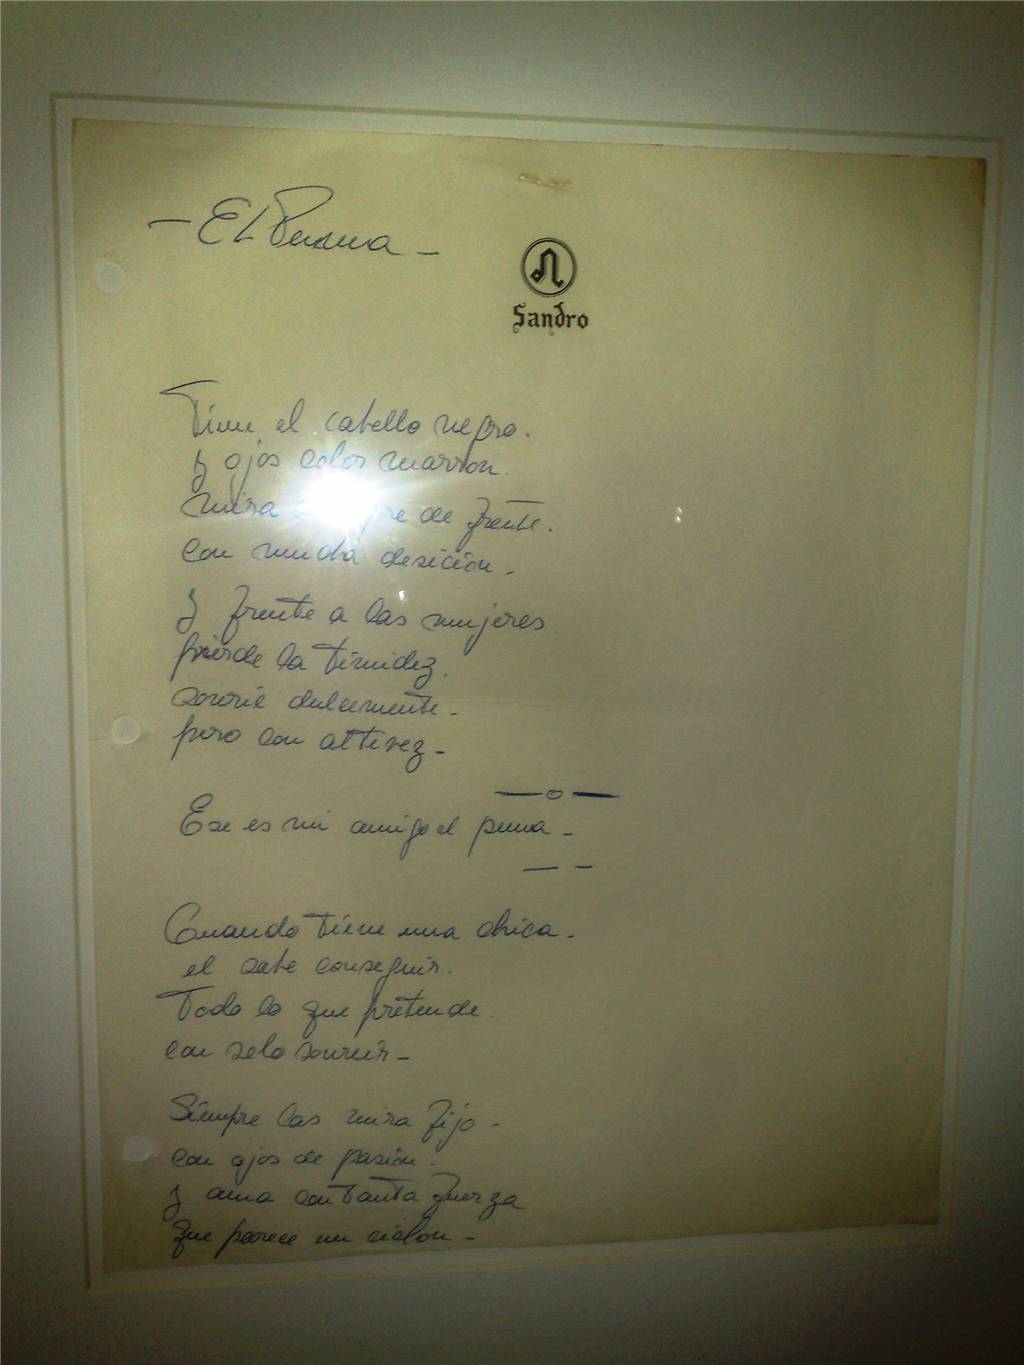 - EL Puma -
Sandro
Tiene el cabello negro.
y ojos color marron.
mira de frente.
con mucha desición -
y frente a las mujeres
pierde la timidez.
sonrie dulcemente -
pero con altivez -
— o —
Ese es mi amigo el puma -
— —
Cuando tiene una chica -
el sabe conseguir.
Todo lo que pretende.
con solo sonreir -
Siempre las mira fijo -
con ojos de pasión.
y ama con tanta fuerza
que parece un ciclon -